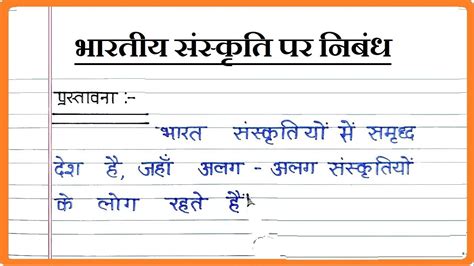 भारतीय संस्कृति पर निबंध
प्रस्तावना :-
भारत संस्कृतियों में समृध्द
देश है, जहाँ अलग - अलग संस्कृतियों
के लोग रहते हैं